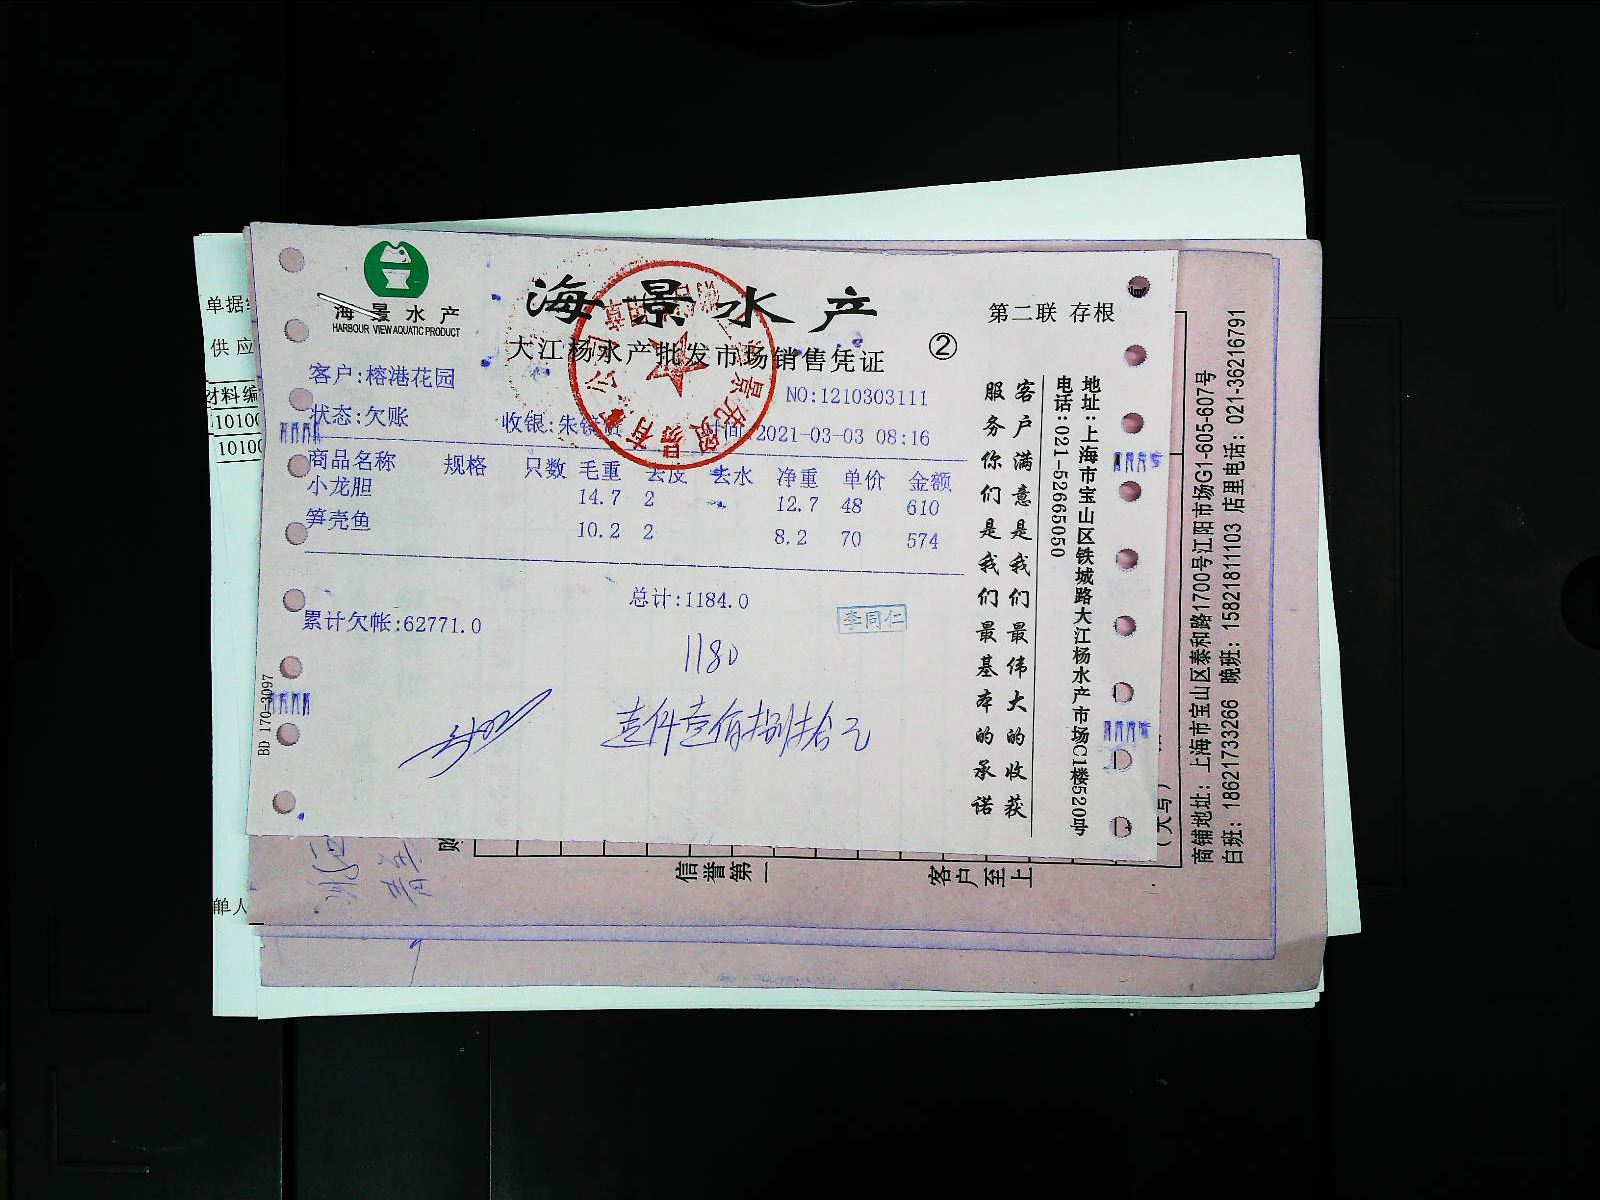 海景水产
HARBOUR VIEW AQUATIC PRODUCT
海景水产
第二联 存根
大江杨水产批发市场销售凭证 ②
客户:榕港花园
NO:1210303111
状态:欠账 收银:朱 时间 2021-03-03 08:16
商品名称 规格 只数 毛重 去皮 去水 净重 单价 金额
小龙胆 14.7 2 12.7 48 610
笋壳鱼 10.2 2 8.2 70 574
总计:1184.0
累计欠帐:62771.0
李同仁
1180
壹仟壹佰捌拾元
BD 170-3097
客户满意是我们最伟大的收获
服务你们是我们最基本的承诺
地址:上海市宝山区铁城路大江杨水产市场C1楼520号
电话:021-52665050
商铺地址:上海市宝山区泰和路1700号江阳市场G1-605-607号
白班:18621733266 晚班:15821811103 店里电话:021-36216791
信誉第一 客户至上
(大写)
单据
供应
材料编
10100
10100
单人